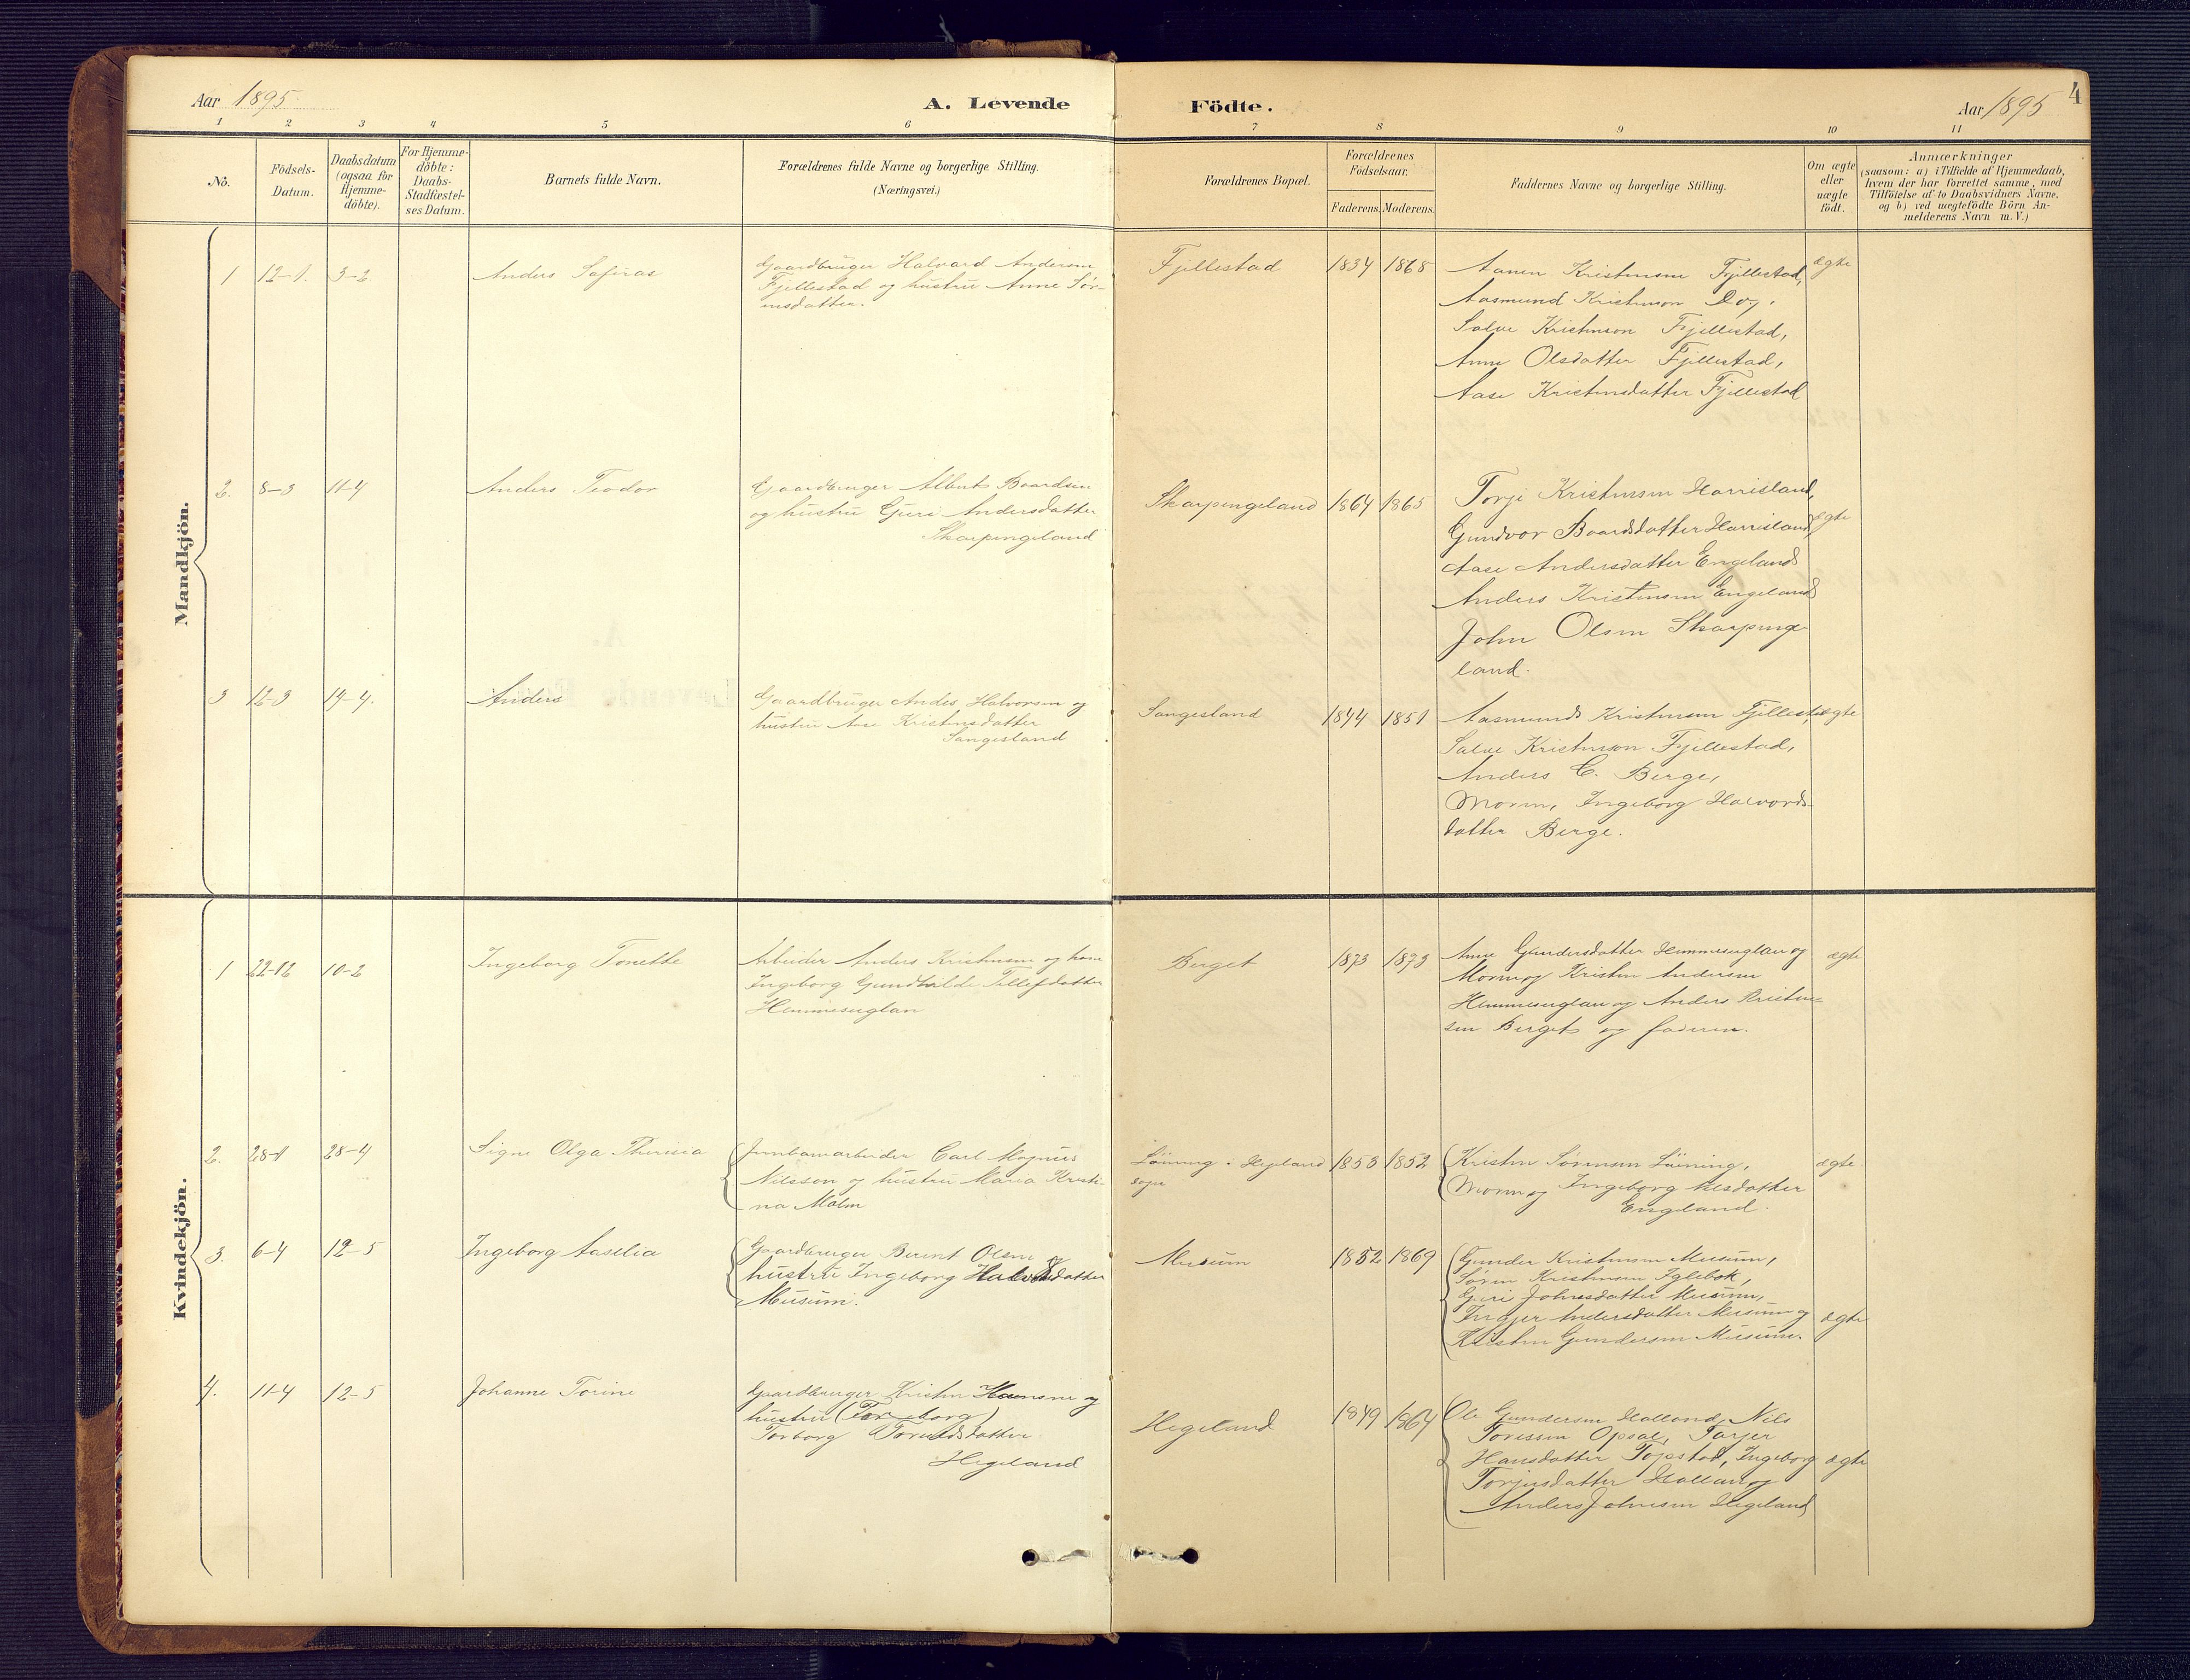 Aar 1895.
A. Levende
Födte.
Aar 1895
4
1 2 3 4 5 6 7 8 9 10 11
No.
Födsels-
Datum.
Daabsdatum
(ogsaa for
Hjemme-
döbte).
For Hjemme-
döbte:
Daabs-
Stadfæstel-
ses Datum.
Barnets fulde Navn.
Forældrenes fulde Navne og borgerlige Stilling.
(Næringsvei.)
Forældrenes Bopæl.
Forældrenes
Födselsaar.
Faderens. Moderens.
Faddernes Navne og borgerlige Stilling.
Om ægte
eller
uægte
födt.
Anmærkninger
(saasom: a) i Tilfælde af Hjemmedaab,
hvem der har forrettet samme, med
Tilföielse af to Daabsvidners Navne.
og b) ved uægtefödte Börn An-
melderens Navn m. V.)
Mandkjön.
1 12-1. 3-2. Anders Safiras
Gaardbruger Halvard Andersen
Fjellestad og hustru Anne Sör-
ensdatter.
Fjellestad 1834 1868
Aanen Kristensen Fjellestad,
Aasmund Kristenson Do,
Salve Kristenson Fjellestad,
Anne Olsdatter Fjellestad,
Aase Kristensdatter Fjellestad
ægte
2. 8-3 11-4 Anders Teodor
Gaardbruger Albert Baardsen
og hustru Guri Andersdatter
Skarpengeland
Skarpengeland 1864 1865
Torje Kristensen Harrisland,
Gundvor Baardsdatter Harrisland,
Aase Andersdatter Engeland
Anders Kristensen Engeland
John Olsen Skarpenge
land.
ægte
3 12-3 14-4. Anders
Gaardbruger Andes Halvorsen og
hustru Aase Kristensdatter
Sangesland
Sangesland 1844 1851
Aasmund Kristensen Fjellestad
Salve Kristenson Fjellestad,
Anders C. Berge,
Moren, Ingeborg Halvords-
datter Berge.
ægte
Kvindekjön.
1 22-12 10-2 Ingeborg Tonette
Arbeider Anders Kristensen og kone
Ingeborg Gundhilde Tellefsdatter
Hemmesuglan
Berget 1873 1873
Anne Gundersdatter Hemmesuglan og
Moren og Kristen Andersen
Hemmesuglan og Anders Kristen-
sen Berget og faderen.
ægte
2. 28-1 28-4 Signe Olga Theresia
Jernbanearbeider Carl Magnus
Nilsson og hustru Maria Kristi-
na Malm
Löining i Hegeland
sogn
1853 1852
Kristen Sörensen Löining,
Moren og Ingeborg Nilsdatter
Engeland.
ægte.
3. 6-4 12-5 Ingeborg Aaselia
Gaardbruger Berent Olsen og
hustru Ingeborg Halvorsdatter
Musum.
Musum 1852 1869
Gunder Kristensen Musum,
Sören Kristensen Iglebek,
Guri Johnsdatter Musum,
Inger Andersdatter Musum og
Kristen Gundersen Musum.
ægte
4. 11-4 12-5 Johanne Torine
Gaardbruger Kristen Hansen og
hustru (Tor borg)
Torborg Torensdatter
Hegeland
Hegeland 1849 1864
Ole Gundersen Halland, Nils
Toressen Opsal, Tarjer
Hansdatter Topstad, Ingeborg
Torjusdatter Halland og
Anders Johnsen Hegeland
ægte